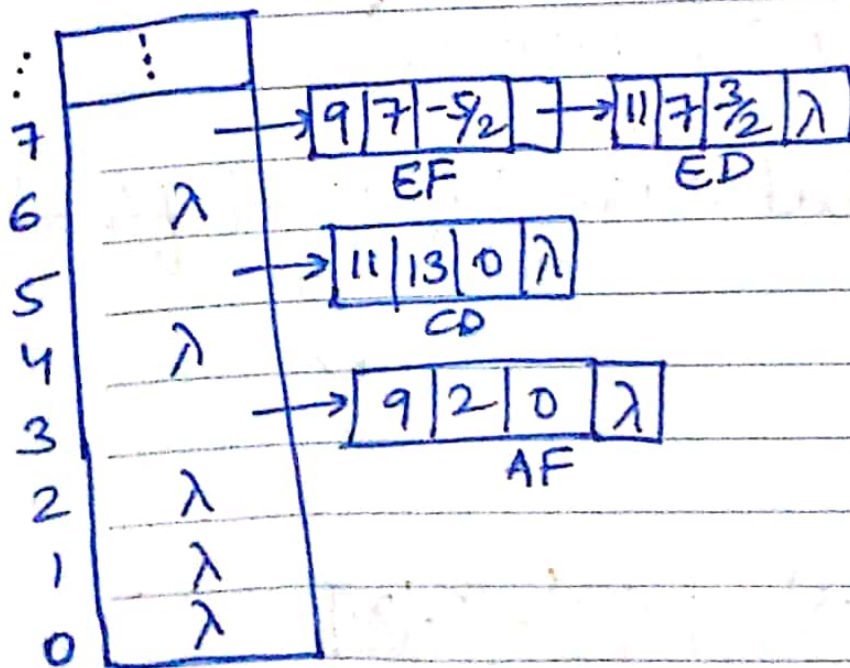 ⋮ ⋮
7 → 9 | 7 | -5/2 | → 11 | 7 | 3/2 | λ
EF ED
6 λ
5 → 11 | 13 | 0 | λ
CD
4 λ
3 → 9 | 2 | 0 | λ
AF
2 λ
1 λ
0 λ